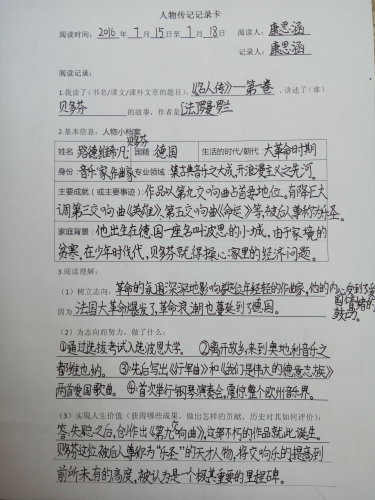 人物传记记录卡
阅读时间：2016 年 7 月 15 日至 7 月 18 日 阅读人：康思涵
记录人：康思涵
阅读记录：
1.我读了（书名/课文/课外文章的题目）：《名人传》第一卷，讲述了（谁）
贝多芬 的故事，作者是[法]罗曼·罗兰
2.基本信息：人物小档案
姓名 路德维希·凡·贝多芬 国籍 德国 生活的时代/朝代 大革命时期
身份 音乐家、作曲家 专业领域 集古典音乐之大成，开浪漫主义之先河。
主要成就（或主要事迹）：作品以第九交响曲占首要地位，有降E大
调第三交响曲《英雄》、第五交响曲《命运》等，被后人尊称为乐圣。
家庭背景：他出生在德国一座名叫波恩的小城，由于家境的
贫寒，在少年时代，贝多芬就得操心家里的经济问题。
3.阅读理解：
（1）树立志向：革命的氛围深深地影响着这位年轻的作曲家，他的内心受到了爱国情怀的鼓动。
因为法国大革命爆发了，革命浪潮也蔓延到了德国。
（2）为志向而努力，做了什么：
①通过选拔考试入选波恩大学。 ②离开故乡，来到奥地利音乐之
都维也纳。 ③先后写出《行军曲》和《我们是伟大的德意志族》
两首爱国歌曲。 ④首次举行钢琴演奏会，震惊整个欧州音乐界。
（3）实现人生价值（获得哪些成果，做出怎样的贡献，历史对其如何评价）：
答：失聪之后，创作出《第九交响曲》，这部不朽的作品就此诞生。
贝多芬这位被后人称为“乐圣”的天才人物，将交响乐的提高到
前所未有的高度，被认为是一个极其重要的里程碑。